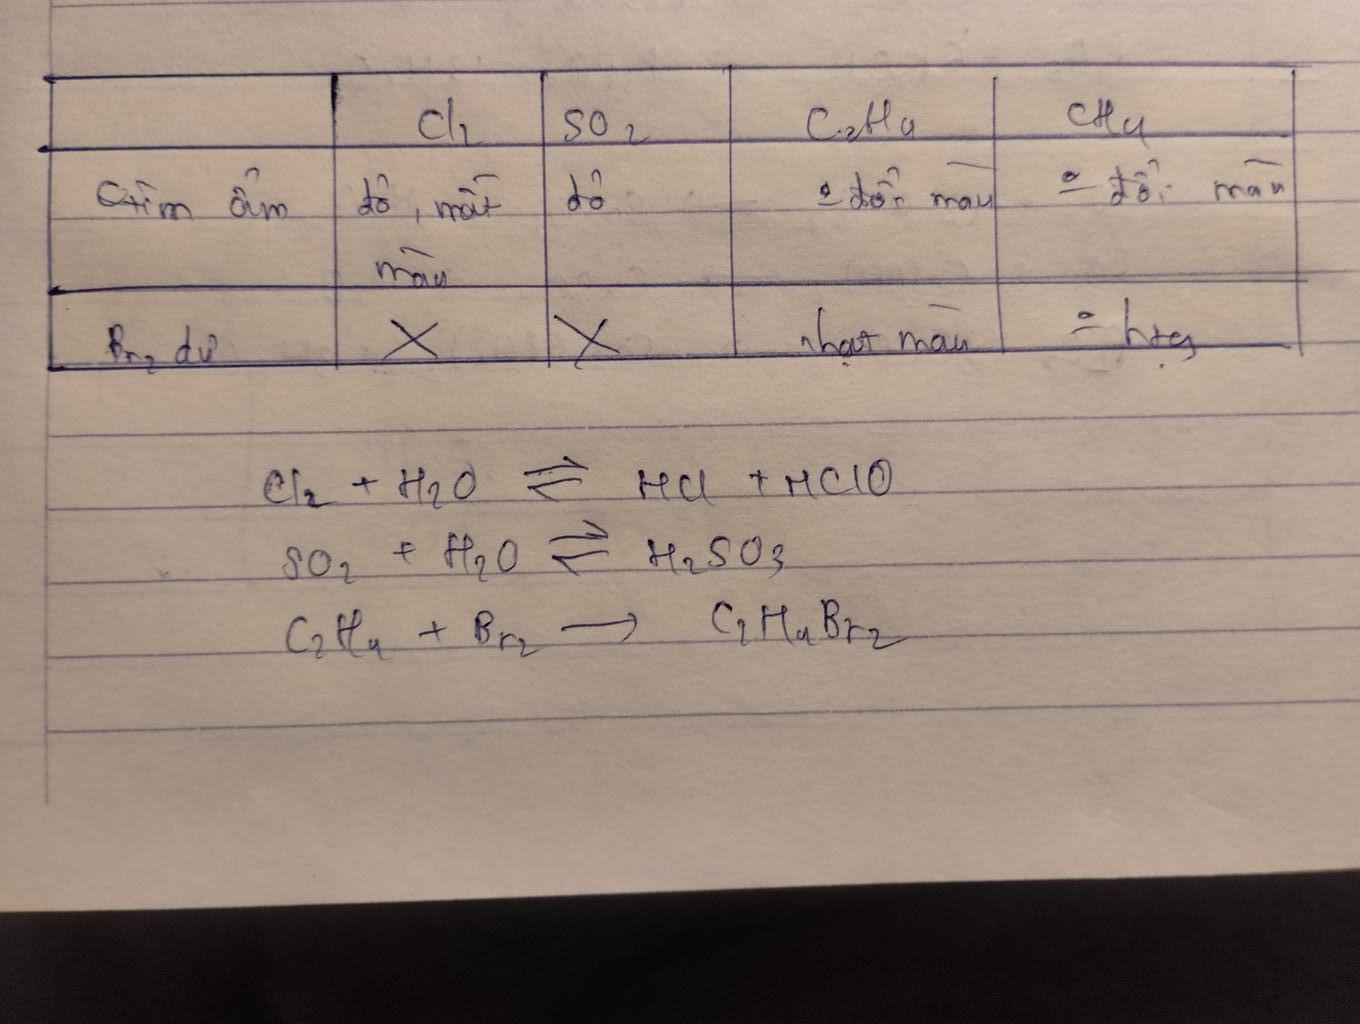 Cl₂ SO₂ C₂H₄ CH₄
ẩm đỏ, mất đỏ đổi màu đổi màu
màu
Br₂ dư X X nhạt màu
Cl₂ + H₂O ⇌ HCl + HClO
SO₂ + H₂O ⇌ H₂SO₃
C₂H₄ + Br₂ → C₂H₄Br₂